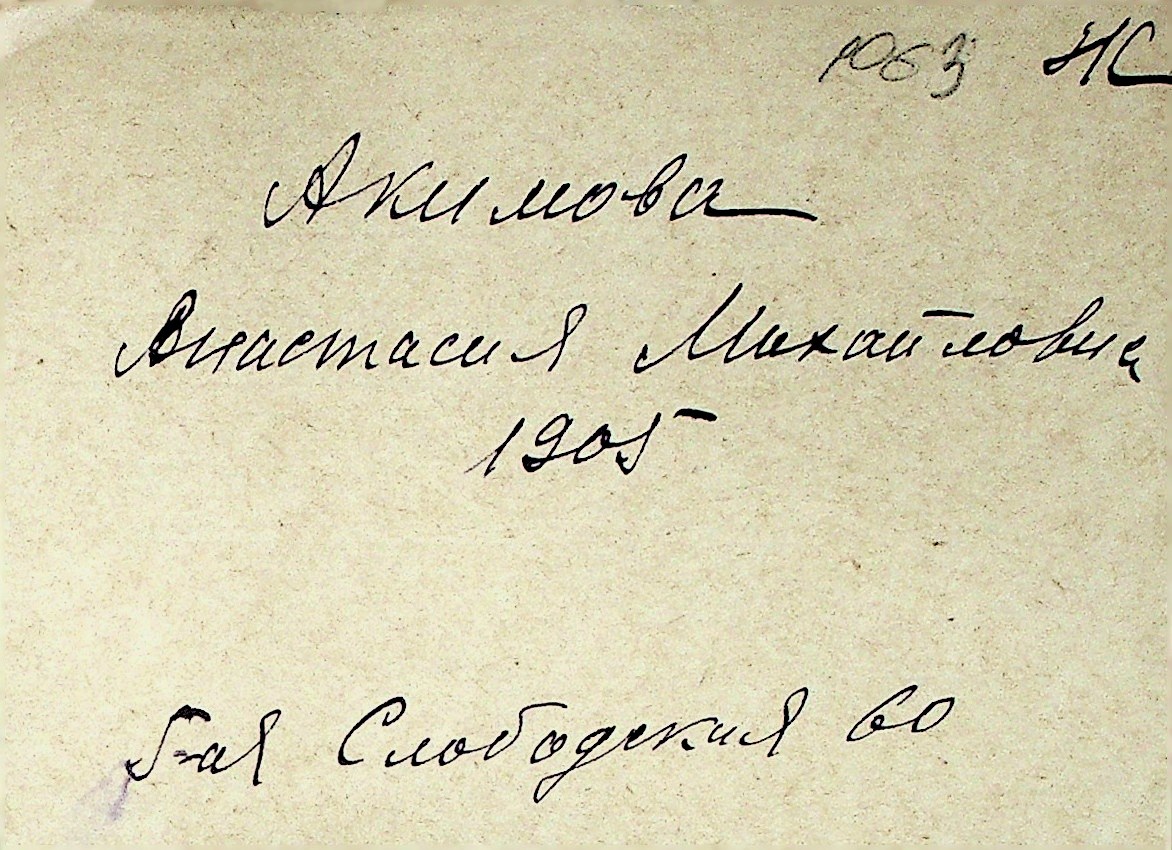 1063 НС
Акимова
Анастасия Михайловна
1905
5-ая Слободская 60